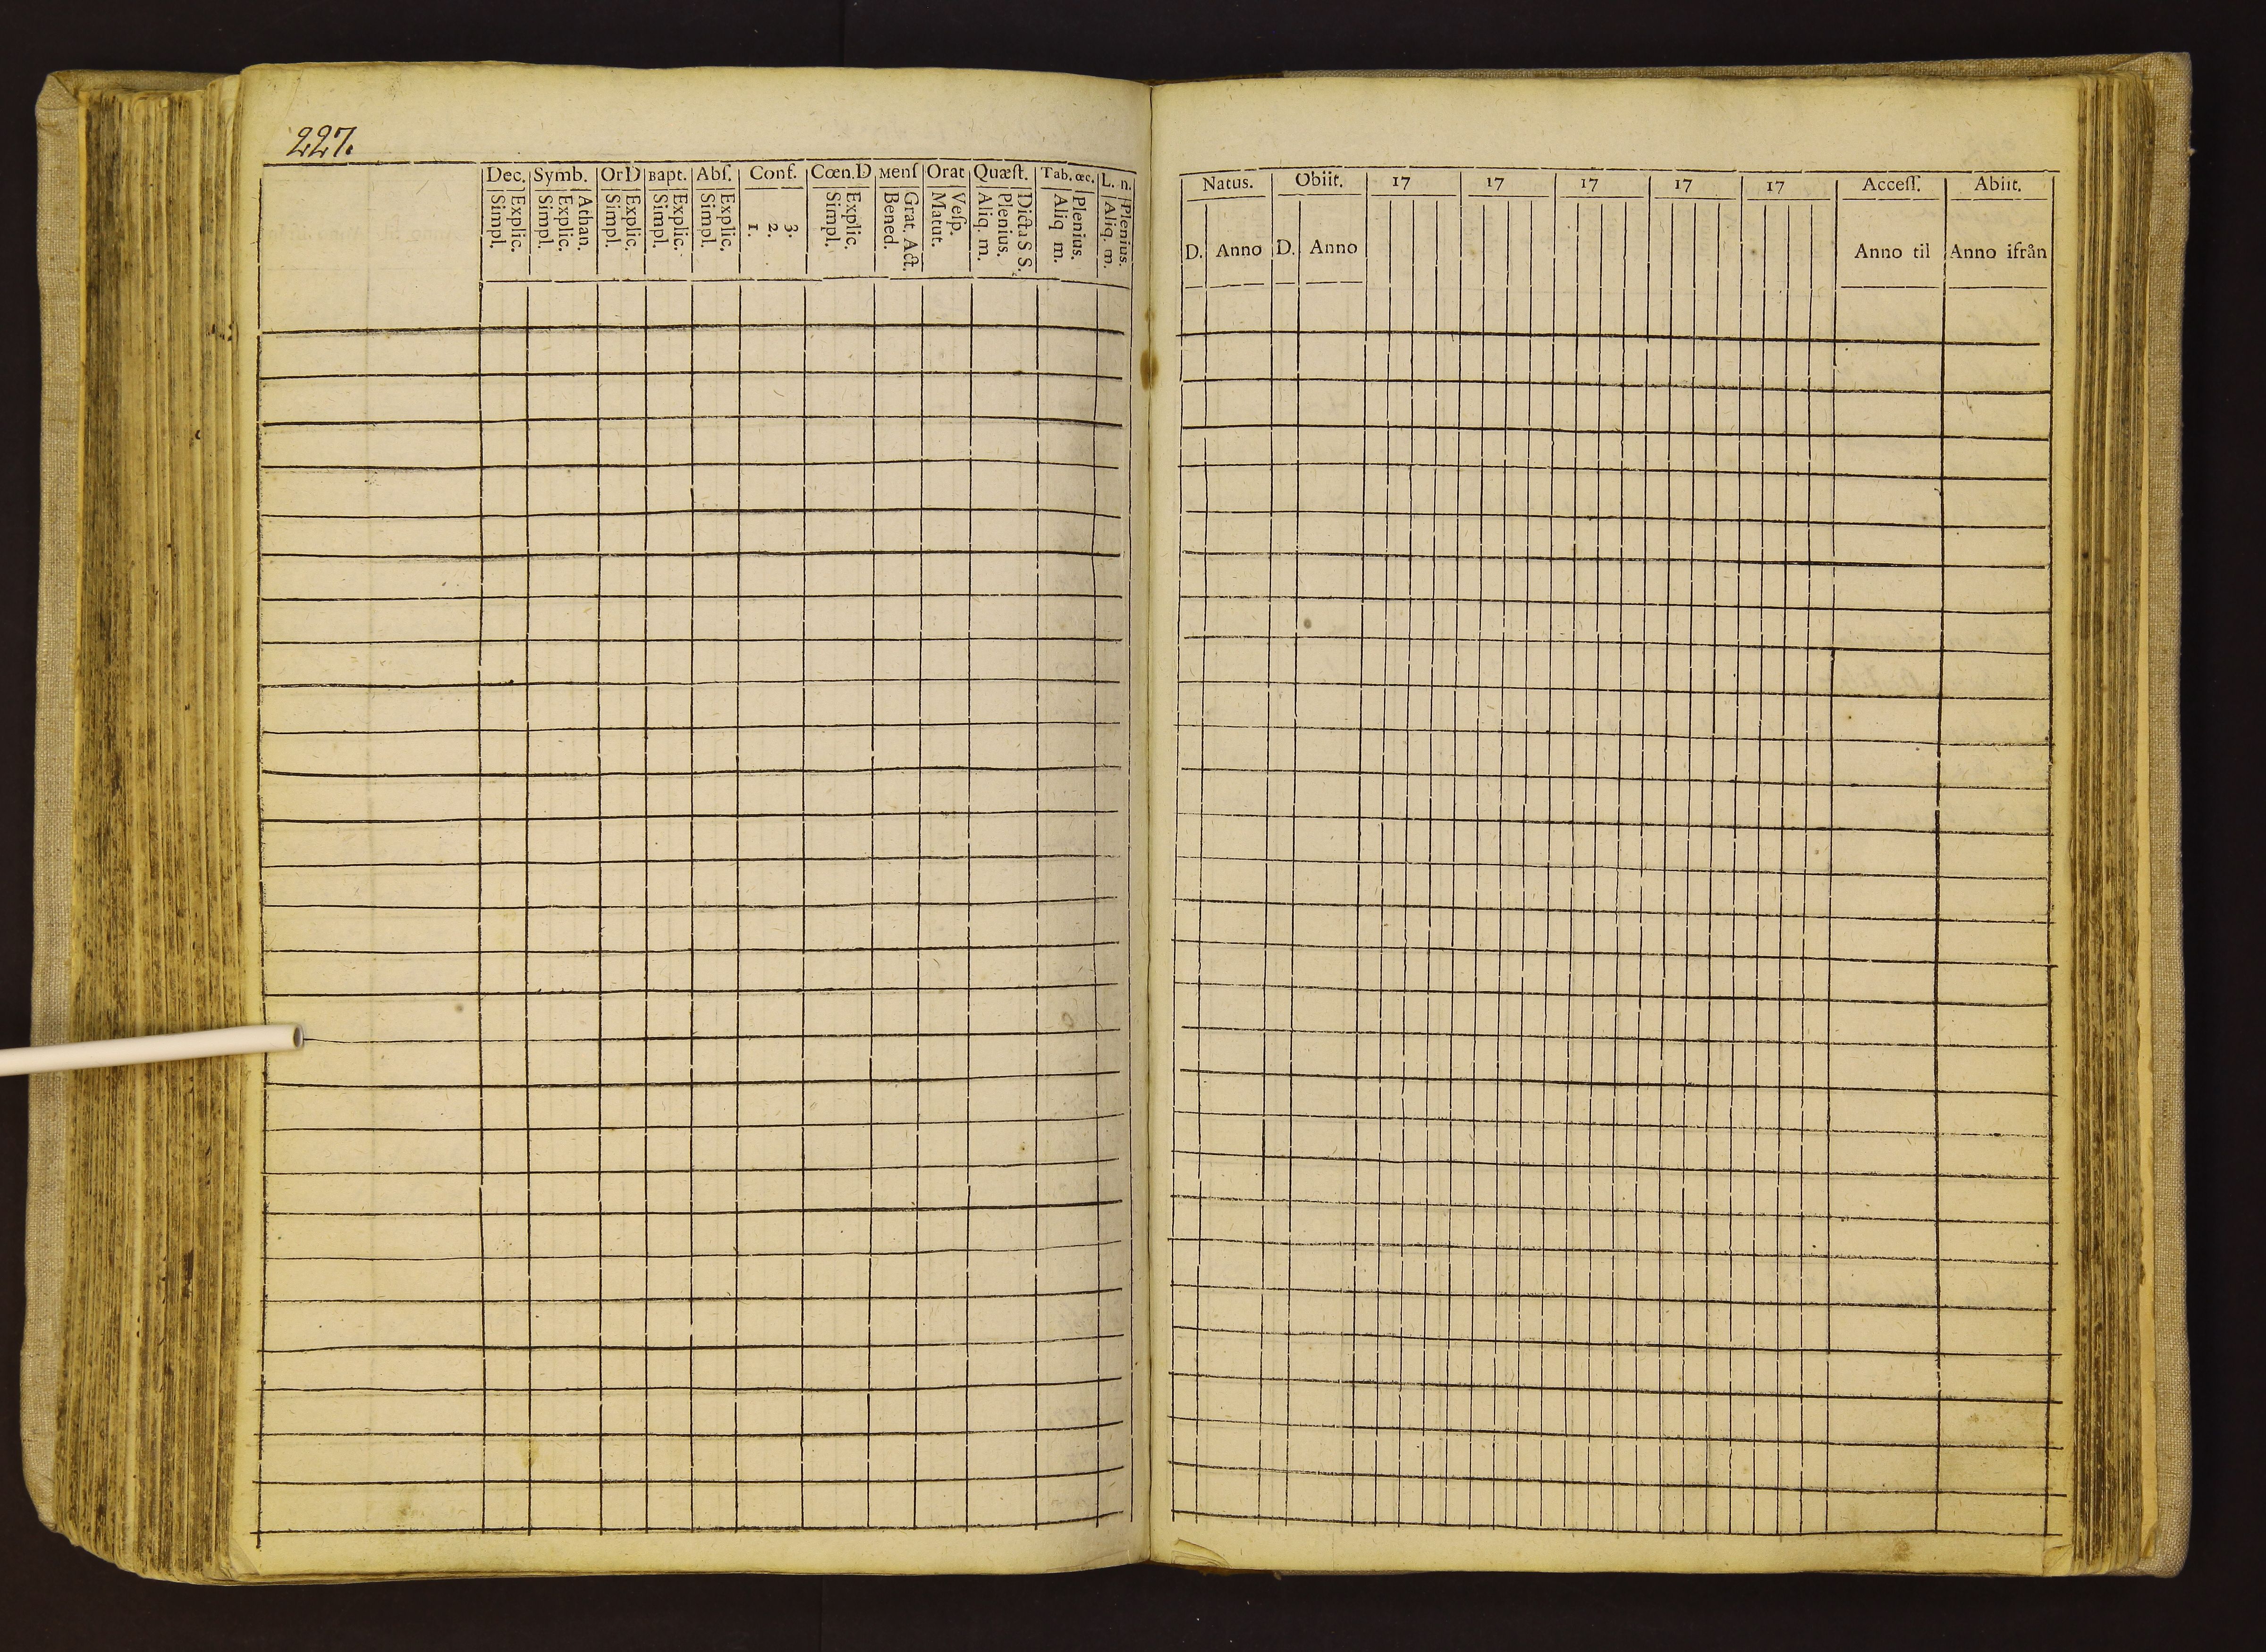 227.
Dec. Symb. OrD Bapt. Abſ. Conf. Cœn.D Menſ Orat Quæſt. Tab. œc. L. n.
Explic. Simpl.
Athan. Explic. Simpl.
Explic. Simpl.
Explic. Simpl.
Explic. Simpl.
3. 2. 1.
Explic. Simpl.
Grat. Act. Bened.
Veſp. Matut.
Dicta S S. Plenius. Aliq. m.
Plenius. Aliq m.
Plenius. Aliq. m.
Natus. Obiit. 17 17 17 17 17 Acceſſ. Abiit.
D. Anno D. Anno Anno til Anno ifrån